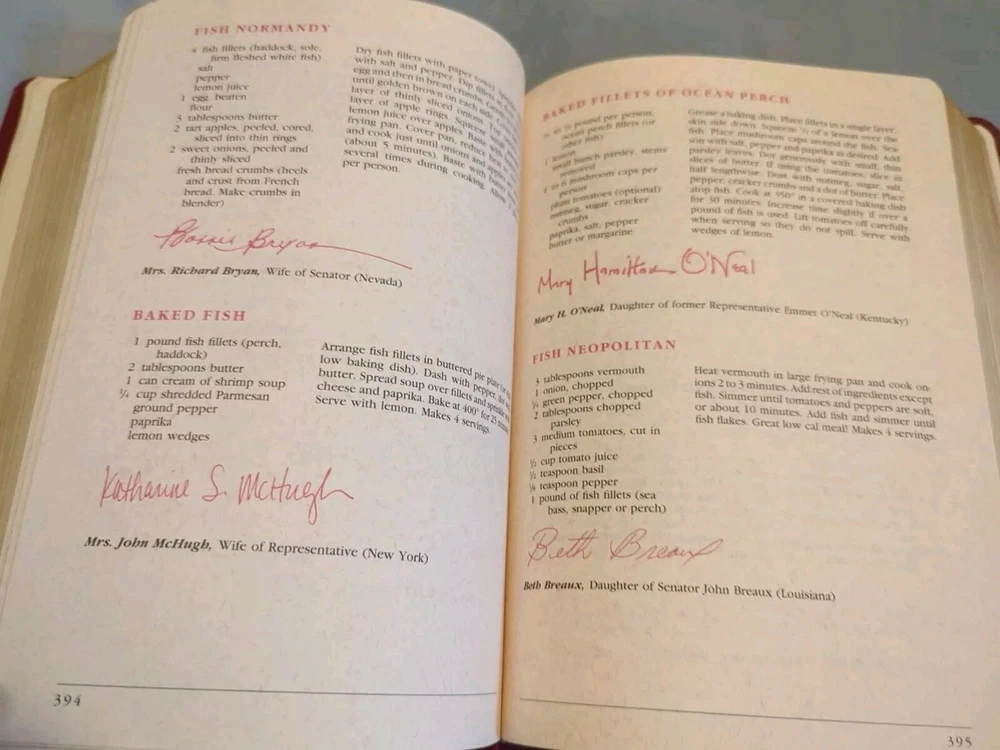 FISH NORMANDY
4 fish fillets (haddock, sole,
firm fleshed white fish)
salt
pepper
lemon juice
1 egg, beaten
flour
3 tablespoons butter
2 tart apples, peeled, cored,
sliced into thin rings
2 sweet onions, peeled and
thinly sliced
fresh bread crumbs (heels
and crust from French
bread. Make crumbs in
blender)
Dry fish fillets with paper
with salt and pepper. Dip fillets in
egg and then in bread crumbs.
until golden brown on each side.
layer of thinly sliced onions. Top
layer of apple rings. Squeeze
lemon juice over apples.
frying pan. Cover pan, reduce
and cook just until onions and apples
(about 5 minutes). Baste with
several times during cooking.
per person.
Bonnie Bryan
Mrs. Richard Bryan, Wife of Senator (Nevada)
BAKED FISH
1 pound fish fillets (perch,
haddock)
2 tablespoons butter
1 can cream of shrimp soup
¼ cup shredded Parmesan
ground pepper
paprika
lemon wedges
Arrange fish fillets in buttered pie plate
low baking dish). Dash with pepper,
butter. Spread soup over fillets and sprinkle
cheese and paprika. Bake at 400° for 25
Serve with lemon. Makes 4 servings.
Katharine S. McHugh
Mrs. John McHugh, Wife of Representative (New York)
394
BAKED FILLETS OF OCEAN PERCH
pound per person,
ocean perch fillets (or
other fish)
1 lemon
small bunch parsley, stems
removed
4 to 6 mushroom caps per
person
plum tomatoes (optional)
nutmeg, sugar, cracker
crumbs
paprika, salt, pepper
butter or margarine
Grease a baking dish. Place fillets in a single layer,
skin side down. Squeeze ½ of a lemon over the
fish. Place mushroom caps around the fish. Sea-
son with salt, pepper and paprika as desired. Add
parsley leaves. Dot generously with small, thin
slices of butter. If using the tomatoes, slice in
half lengthwise. Dust with nutmeg, sugar, salt,
pepper, cracker crumbs and a dot of butter. Place
atop fish. Cook at 350° in a covered baking dish
for 30 minutes. Increase time slightly if over a
pound of fish is used. Lift tomatoes off carefully
when serving so they do not spill. Serve with
wedges of lemon.
Mary Hamilton O'Neal
Mary H. O'Neal, Daughter of former Representative Emmet O'Neal (Kentucky)
FISH NEOPOLITAN
3 tablespoons vermouth
1 onion, chopped
¼ green pepper, chopped
2 tablespoons chopped
parsley
3 medium tomatoes, cut in
pieces
½ cup tomato juice
½ teaspoon basil
⅛ teaspoon pepper
1 pound of fish fillets (sea
bass, snapper or perch)
Heat vermouth in large frying pan and cook on-
ions 2 to 3 minutes. Add rest of ingredients except
fish. Simmer until tomatoes and peppers are soft,
or about 10 minutes. Add fish and simmer until
fish flakes. Great low cal meal! Makes 4 servings.
Beth Breaux
Beth Breaux, Daughter of Senator John Breaux (Louisiana)
395